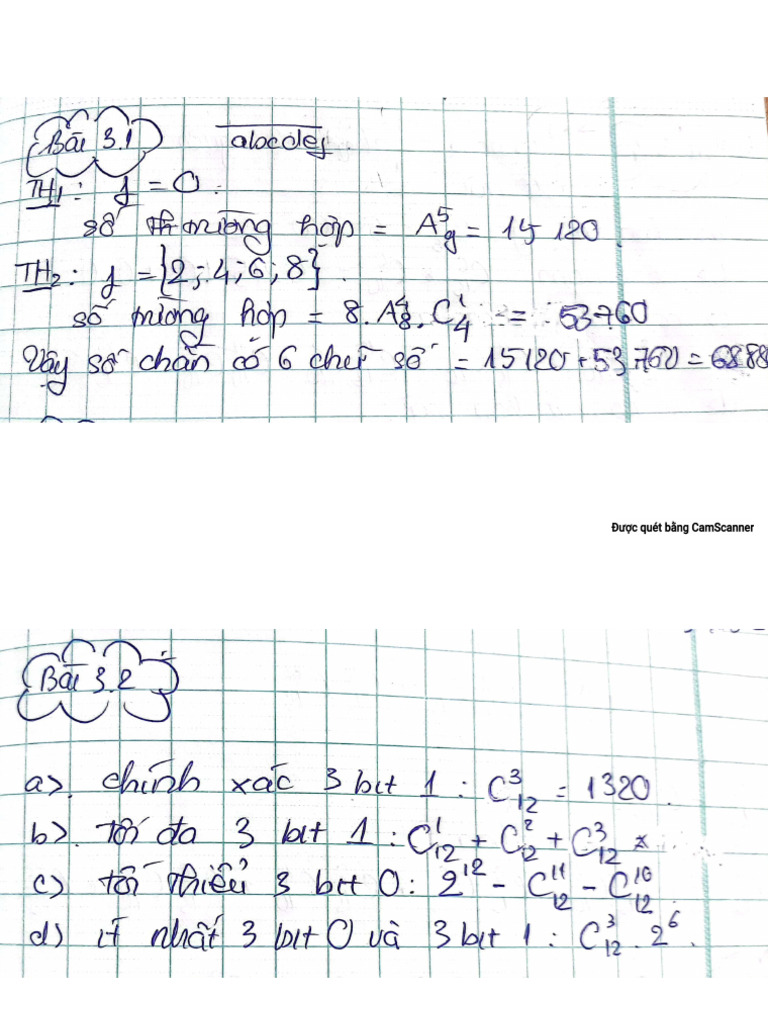 Bài 3.1 abcdef
TH1: f = 0.
số trường hợp = A⁵₉ = 15 120.
TH2: f = {2;4;6;8}.
số trường hợp = 8. A⁴₈. C¹₄ = 53760
Vậy số chẵn có 6 chữ số = 15120 + 53760 = 6888
Được quét bằng CamScanner
Bài 3.2
a>. chính xác 3 bit 1 : C³₁₂ = 1320.
b>. tối đa 3 bit 1 : C¹₁₂ + C²₁₂ + C³₁₂
c) tối thiểu 3 bit 0 : 2¹² - C¹¹₁₂ - C¹⁰₁₂.
d) ít nhất 3 bit 0 và 3 bit 1 : C³₁₂ . 2⁶.